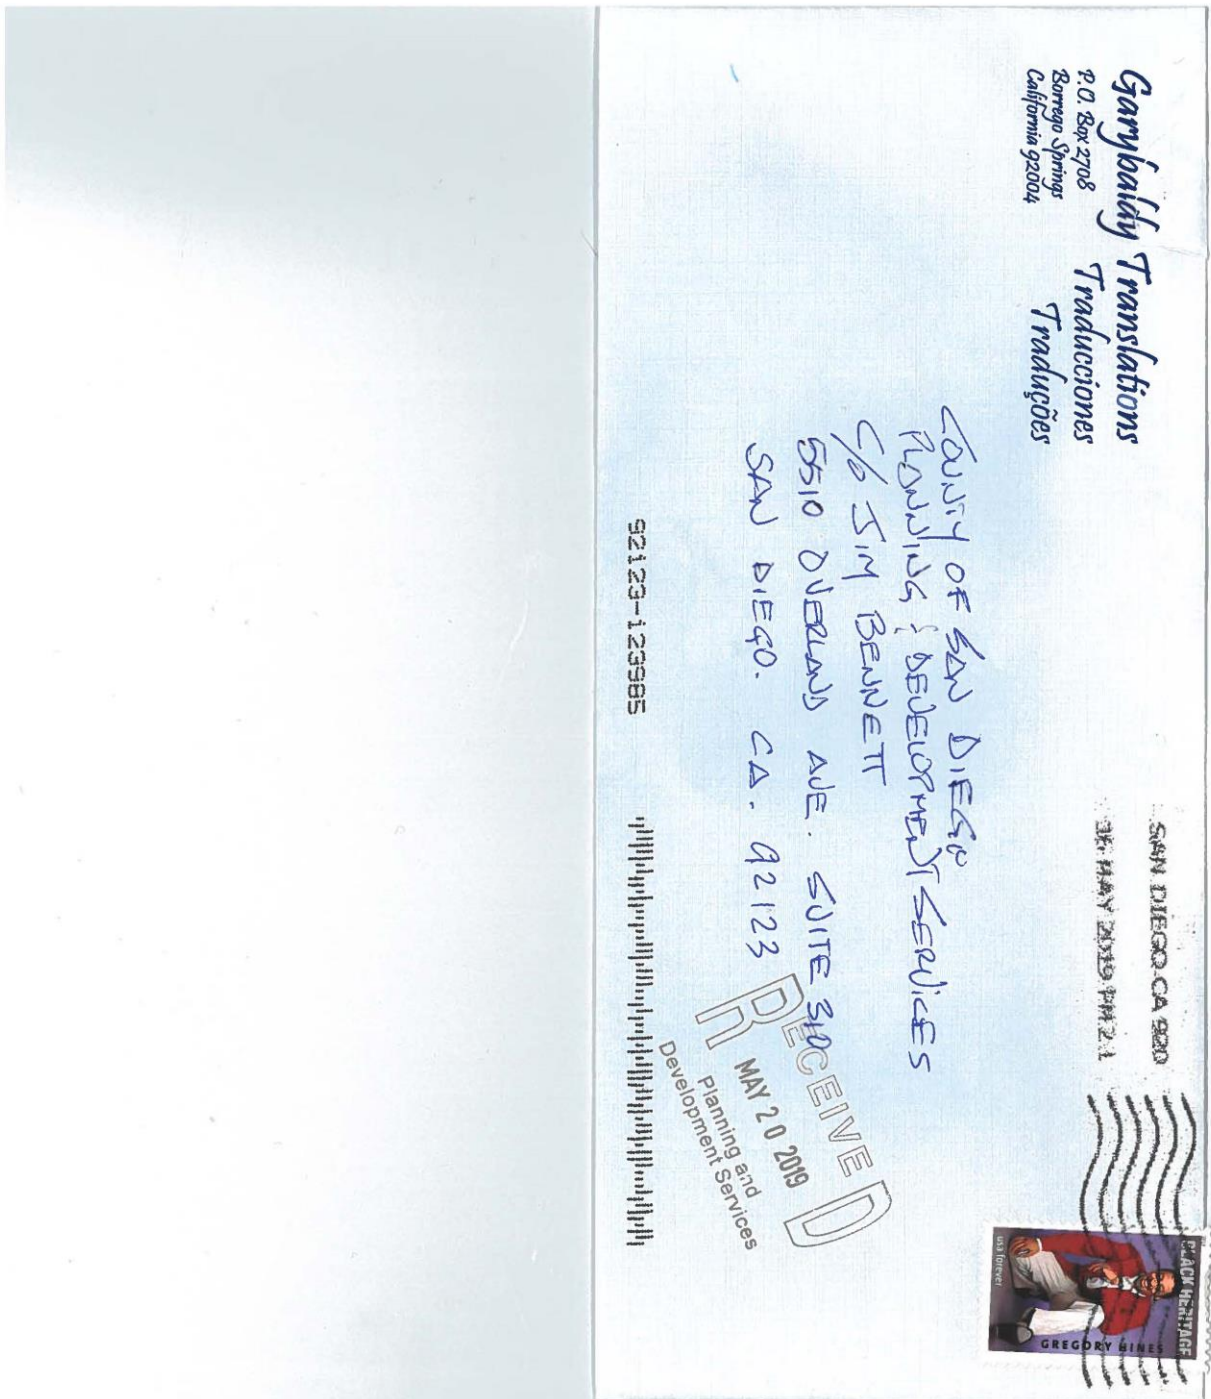 Garybaldy Translations
Traducciones
Traduções
P.O. Box 2708
Borrego Springs
California 92004
SAN DIEGO CA 920
16 MAY 2019 PM 2 L
BLACK HERITAGE
GREGORY HINES
usa forever
COUNTY OF SAN DIEGO
PLANNING & DEVELOPMENT SERVICES
C/O JIM BENNETT
5510 OVERLAND AVE. SUITE 310
SAN DIEGO. CA. 92123
RECEIVED
MAY 20 2019
Planning and
Development Services
92123-123985